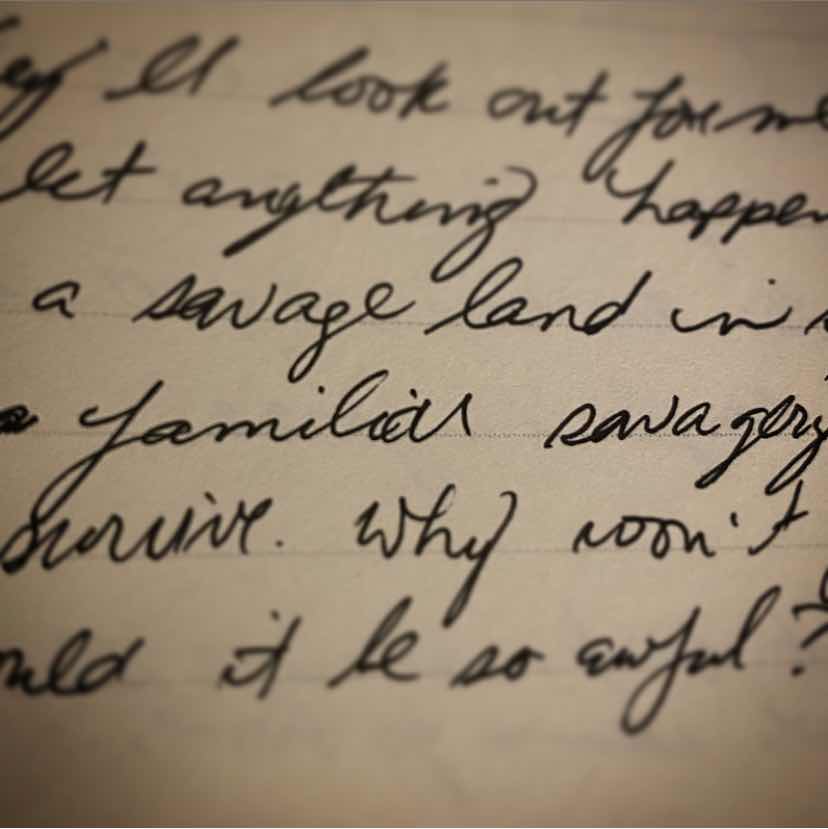 ey'll look out for me
let anything happen
a savage land in
familiar savagery
survive. Why won't
ould it be so awful?